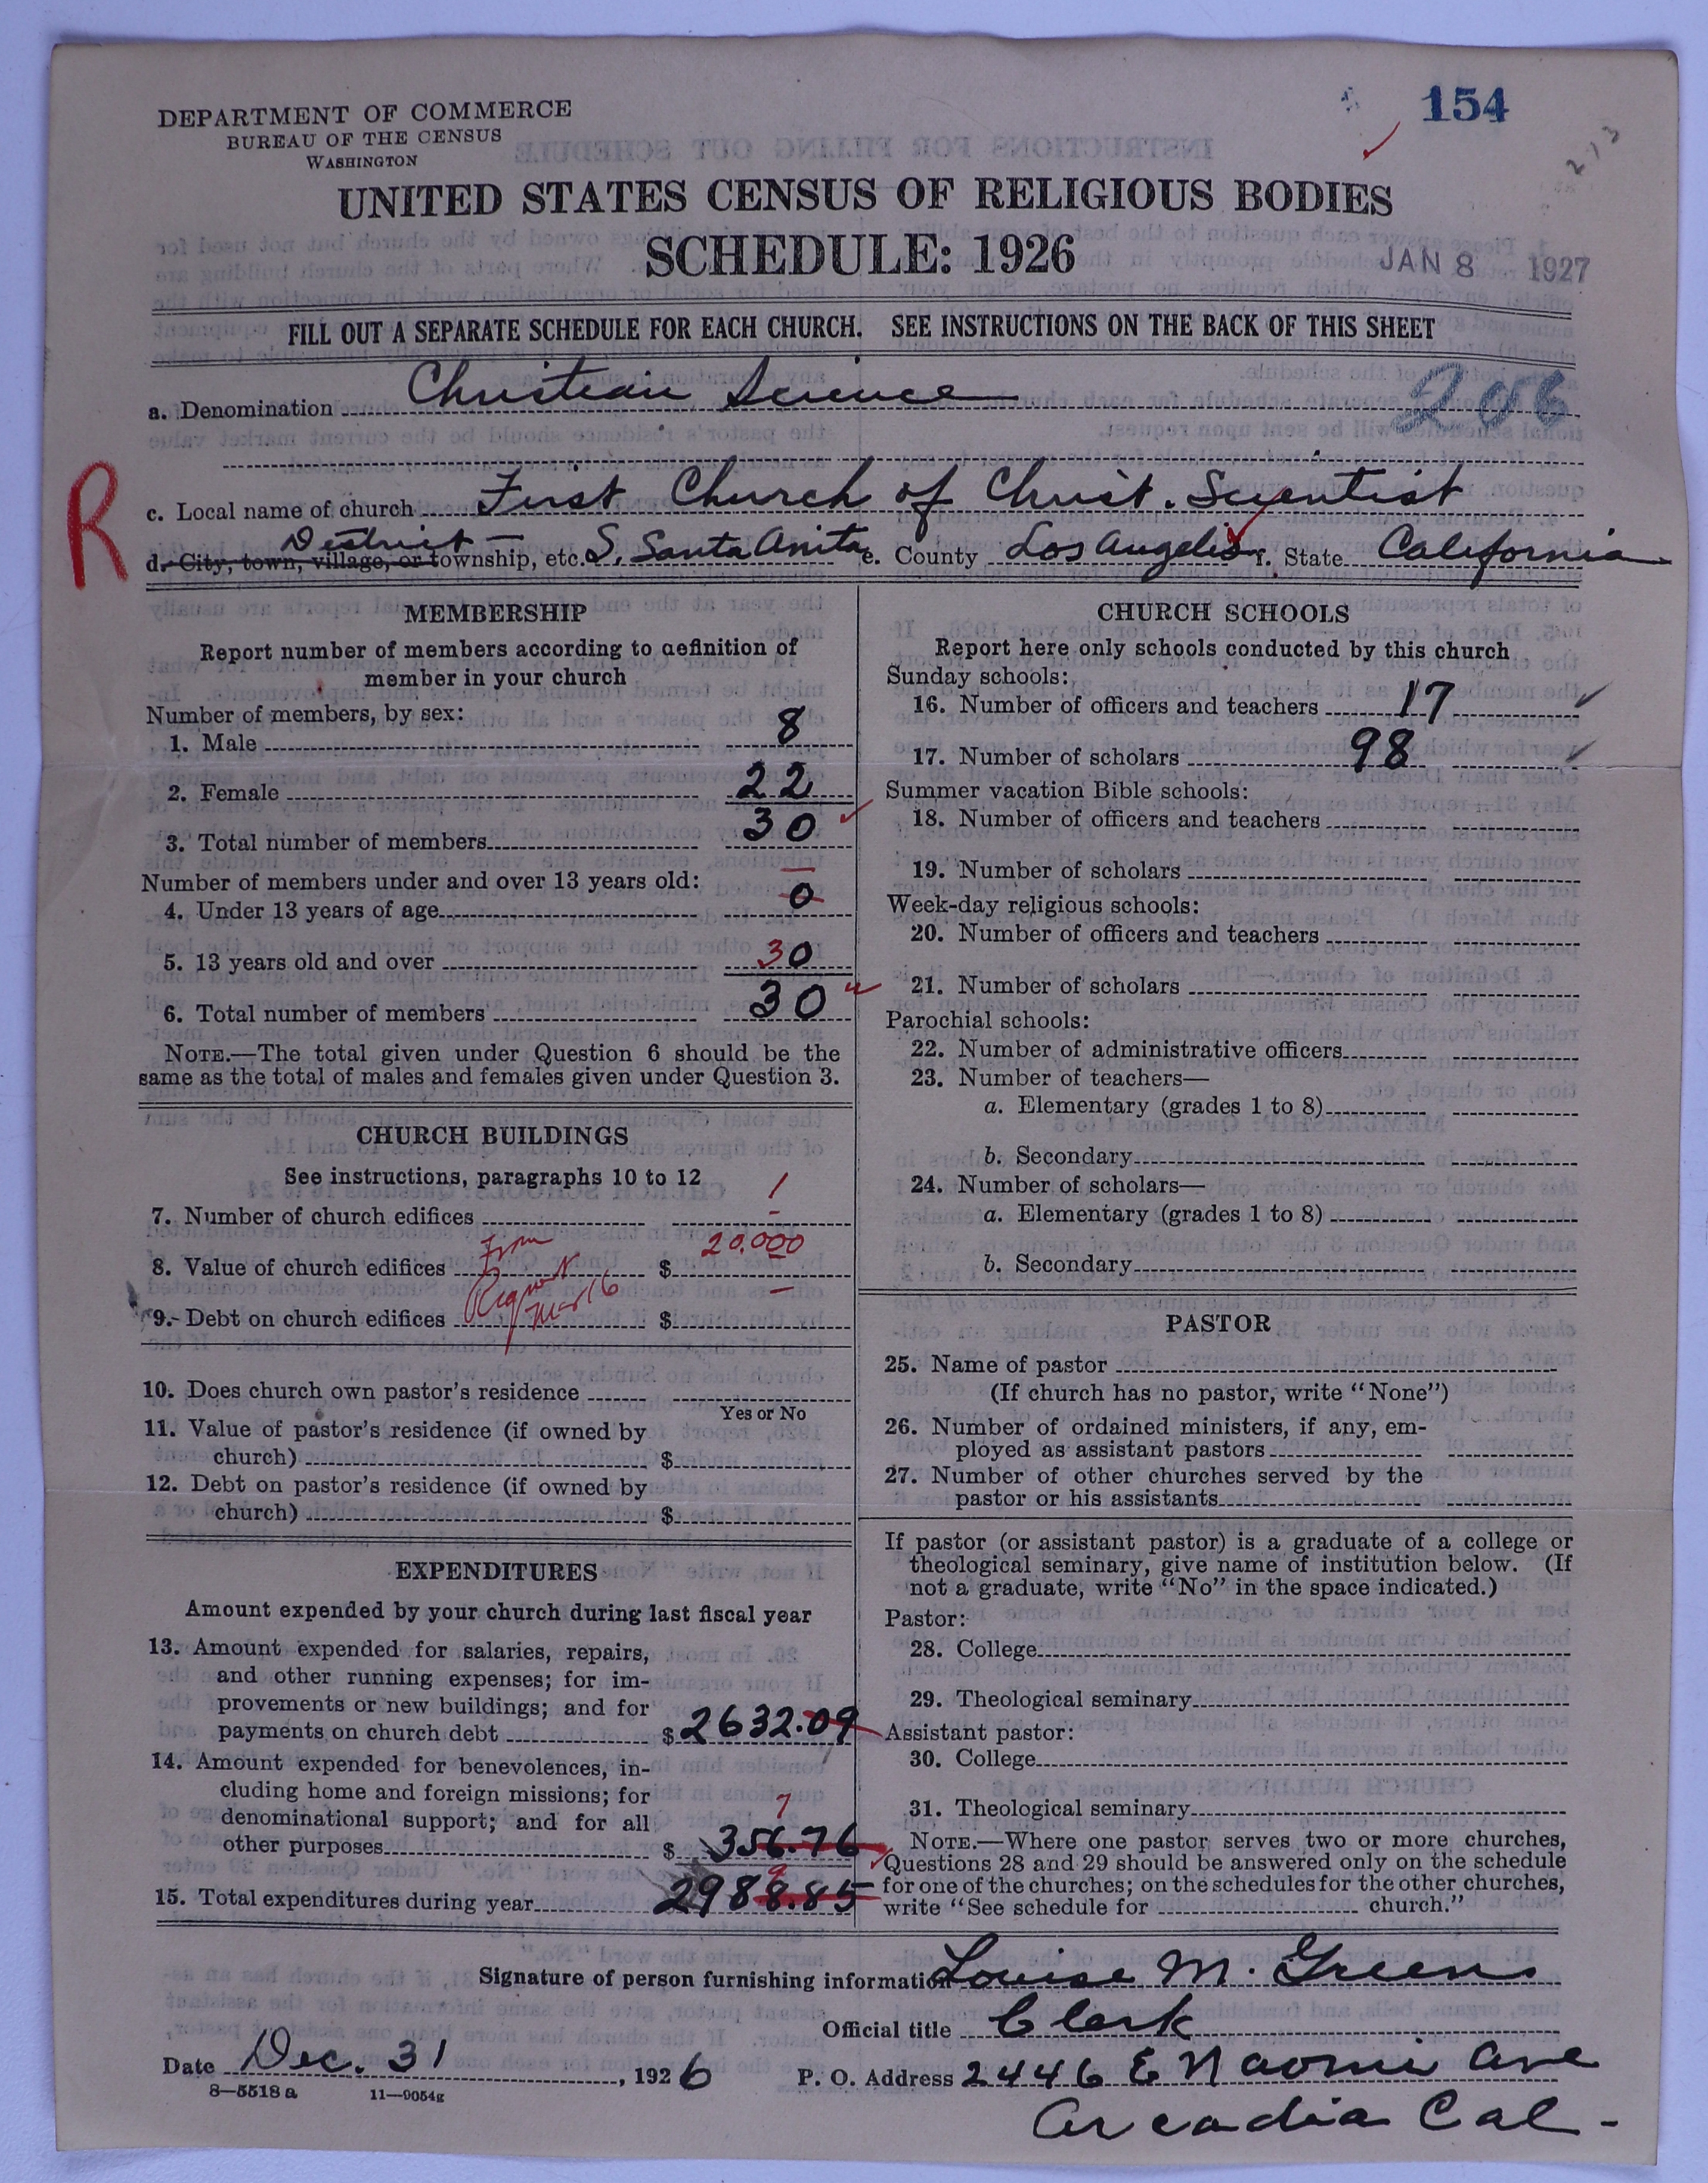 DEPARTMENT OF COMMERCE
BUREAU OF THE CENSUS
WASHINGTON
154
213
UNITED STATES CENSUS OF RELIGIOUS BODIES
SCHEDULE: 1926
JAN 8 1927
FILL OUT A SEPARATE SCHEDULE FOR EACH CHURCH. SEE INSTRUCTIONS ON THE BACK OF THIS SHEET
a. Denomination Christian Science
206
R
c. Local name of church First Church of Christ. Scientist
District
d. City, town, village, or township, etc. S. Santa Anita e. County Los Angeles f. State California
MEMBERSHIP
Report number of members according to definition of
member in your church
Number of members, by sex:
1. Male 8
2. Female 22
3. Total number of members 30
Number of members under and over 13 years old:
4. Under 13 years of age 0
5. 13 years old and over 30
6. Total number of members 30
NOTE.—The total given under Question 6 should be the
same as the total of males and females given under Question 3.
CHURCH BUILDINGS
See instructions, paragraphs 10 to 12
7. Number of church edifices 1
8. Value of church edifices From $ 20.000
9. Debt on church edifices $ —
10. Does church own pastor's residence
Yes or No
11. Value of pastor's residence (if owned by
church) $
12. Debt on pastor's residence (if owned by
church) $
EXPENDITURES
Amount expended by your church during last fiscal year
13. Amount expended for salaries, repairs,
and other running expenses; for im-
provements or new buildings; and for
payments on church debt $ 2632.09
14. Amount expended for benevolences, in-
cluding home and foreign missions; for
denominational support; and for all
7
other purposes $ 356.76
9
15. Total expenditures during year 2988.85
CHURCH SCHOOLS
Report here only schools conducted by this church
Sunday schools:
16. Number of officers and teachers 17
17. Number of scholars 98
Summer vacation Bible schools:
18. Number of officers and teachers
19. Number of scholars
Week-day religious schools:
20. Number of officers and teachers
21. Number of scholars
Parochial schools:
22. Number of administrative officers
23. Number of teachers—
a. Elementary (grades 1 to 8)
b. Secondary
24. Number of scholars—
a. Elementary (grades 1 to 8)
b. Secondary
PASTOR
25. Name of pastor
(If church has no pastor, write "None")
26. Number of ordained ministers, if any, em-
ployed as assistant pastors
27. Number of other churches served by the
pastor or his assistants
If pastor (or assistant pastor) is a graduate of a college or
theological seminary, give name of institution below. (If
not a graduate, write "No" in the space indicated.)
Pastor:
28. College
29. Theological seminary
Assistant pastor:
30. College
31. Theological seminary
NOTE.—Where one pastor serves two or more churches,
Questions 28 and 29 should be answered only on the schedule
for one of the churches; on the schedules for the other churches,
write "See schedule for church."
Signature of person furnishing information Louise M. Greene
Official title Clerk
Date Dec. 31, 1926 P. O. Address 2446 E Naomi Ave
8—5518 a 11—9054g
Arcadia Cal-